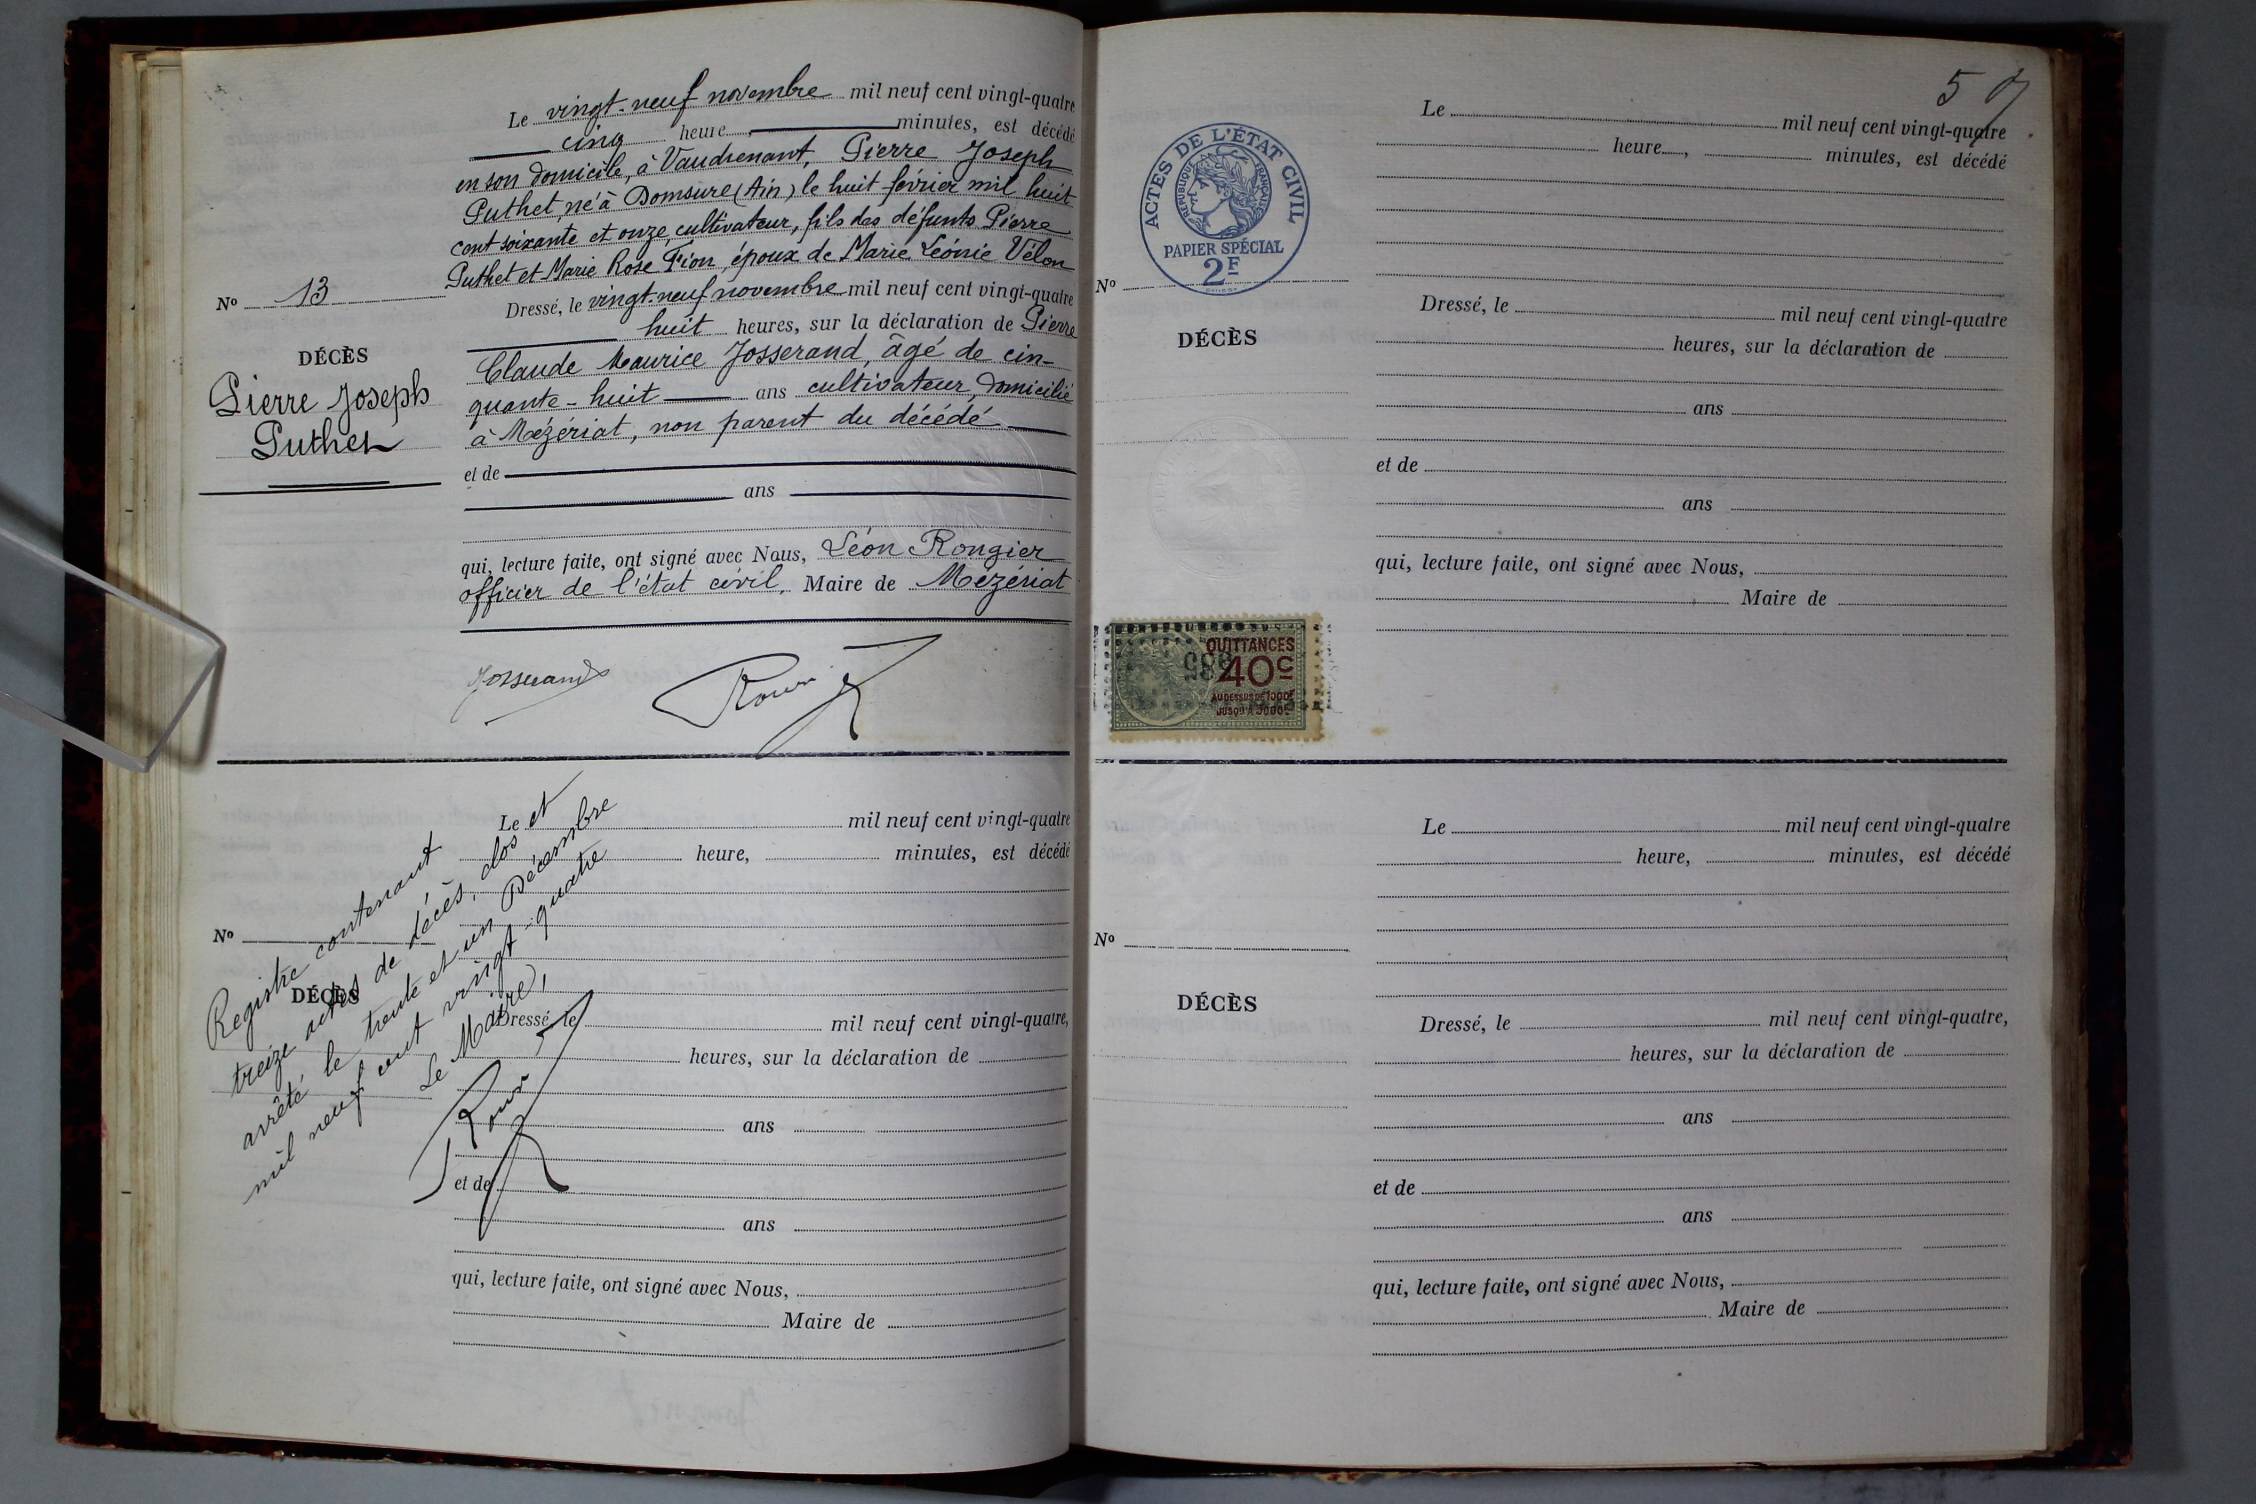 Le vingt-neuf novembre mil neuf cent vingt-quatre
cinq heure, minutes, est décédé
en son domicile, à Vaudrenant, Pierre Joseph
Puthet, né à Domsure (Ain) le huit février mil huit
cent soixante et onze, cultivateur, fils des défunts Pierre
Puthet et Marie Rose Fion, époux de Marie Léonie Vélon
Nº 13
DÉCÈS
Pierre Joseph
Puthet
Dressé, le vingt-neuf novembre mil neuf cent vingt-quatre
huit heures, sur la déclaration de Pierre
Claude Maurice Josserand, âgé de cin-
quante-huit ans cultivateur, domicilié
à Mézériat, non parent du décédé
et de
ans
qui, lecture faite, ont signé avec Nous, Léon Rongier
officier de l'état civil, Maire de Mézériat
Josserand
Le mil neuf cent vingt-quatre
heure, minutes, est décédé
Nº
DÉCÈS
Dressé, le mil neuf cent vingt-quatre,
heures, sur la déclaration de
ans
et de
ans
qui, lecture faite, ont signé avec Nous,
Maire de
Registre contenant
treize actes de décès, clos et
arrêté le trente et un Décembre
mil neuf cent vingt-quatre
Le Maire,
ACTES DE L'ÉTAT CIVIL
RÉPUBLIQUE FRANÇAISE
PAPIER SPÉCIAL
2F
Le mil neuf cent vingt-quatre
heure, minutes, est décédé
Nº
DÉCÈS
Dressé, le mil neuf cent vingt-quatre
heures, sur la déclaration de
ans
et de
ans
qui, lecture faite, ont signé avec Nous,
Maire de
QUITTANCES
40c
AU DESSUS DE 1000F
JUSQU'À 3000F
Le mil neuf cent vingt-quatre
heure, minutes, est décédé
Nº
DÉCÈS
Dressé, le mil neuf cent vingt-quatre,
heures, sur la déclaration de
ans
et de
ans
qui, lecture faite, ont signé avec Nous,
Maire de